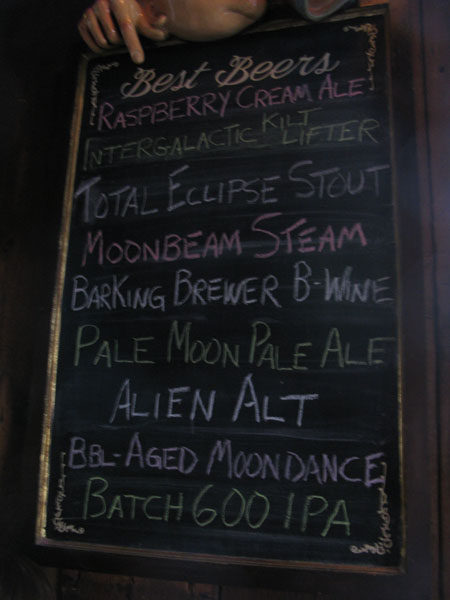 Best Beers
RASPBERRY CREAM ALE
INTERGALACTIC KILT LIFTER
TOTAL ECLIPSE STOUT
MOONBEAM STEAM
BARKING BREWER B-WINE
PALE MOON PALE ALE
ALIEN ALT
BBL-AGED MOONDANCE
BATCH 600 IPA